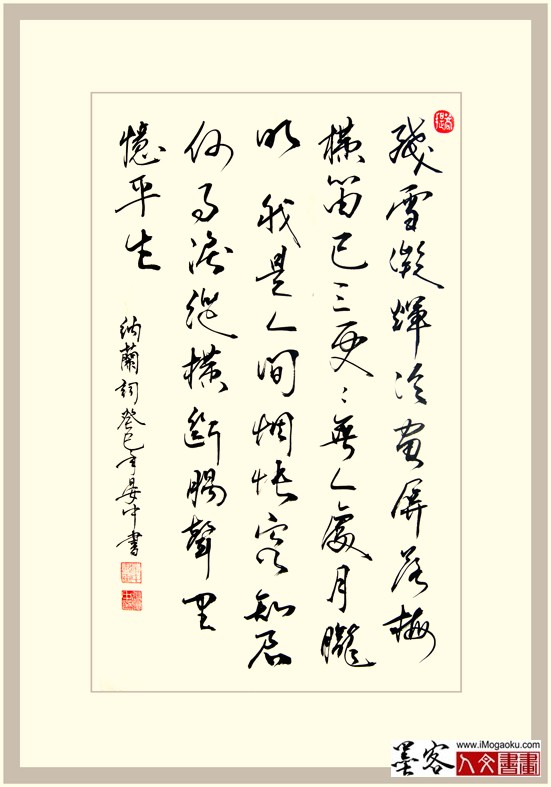 残雪凝輝冷畫屏落梅
橫笛已三更〻無人處月朧
明 我是人間惆悵客知君
何事淚縱橫斷腸聲里
憶平生
納蘭詞癸巳年晏中書
墨客
www.iMogaoku.com
人文書畫